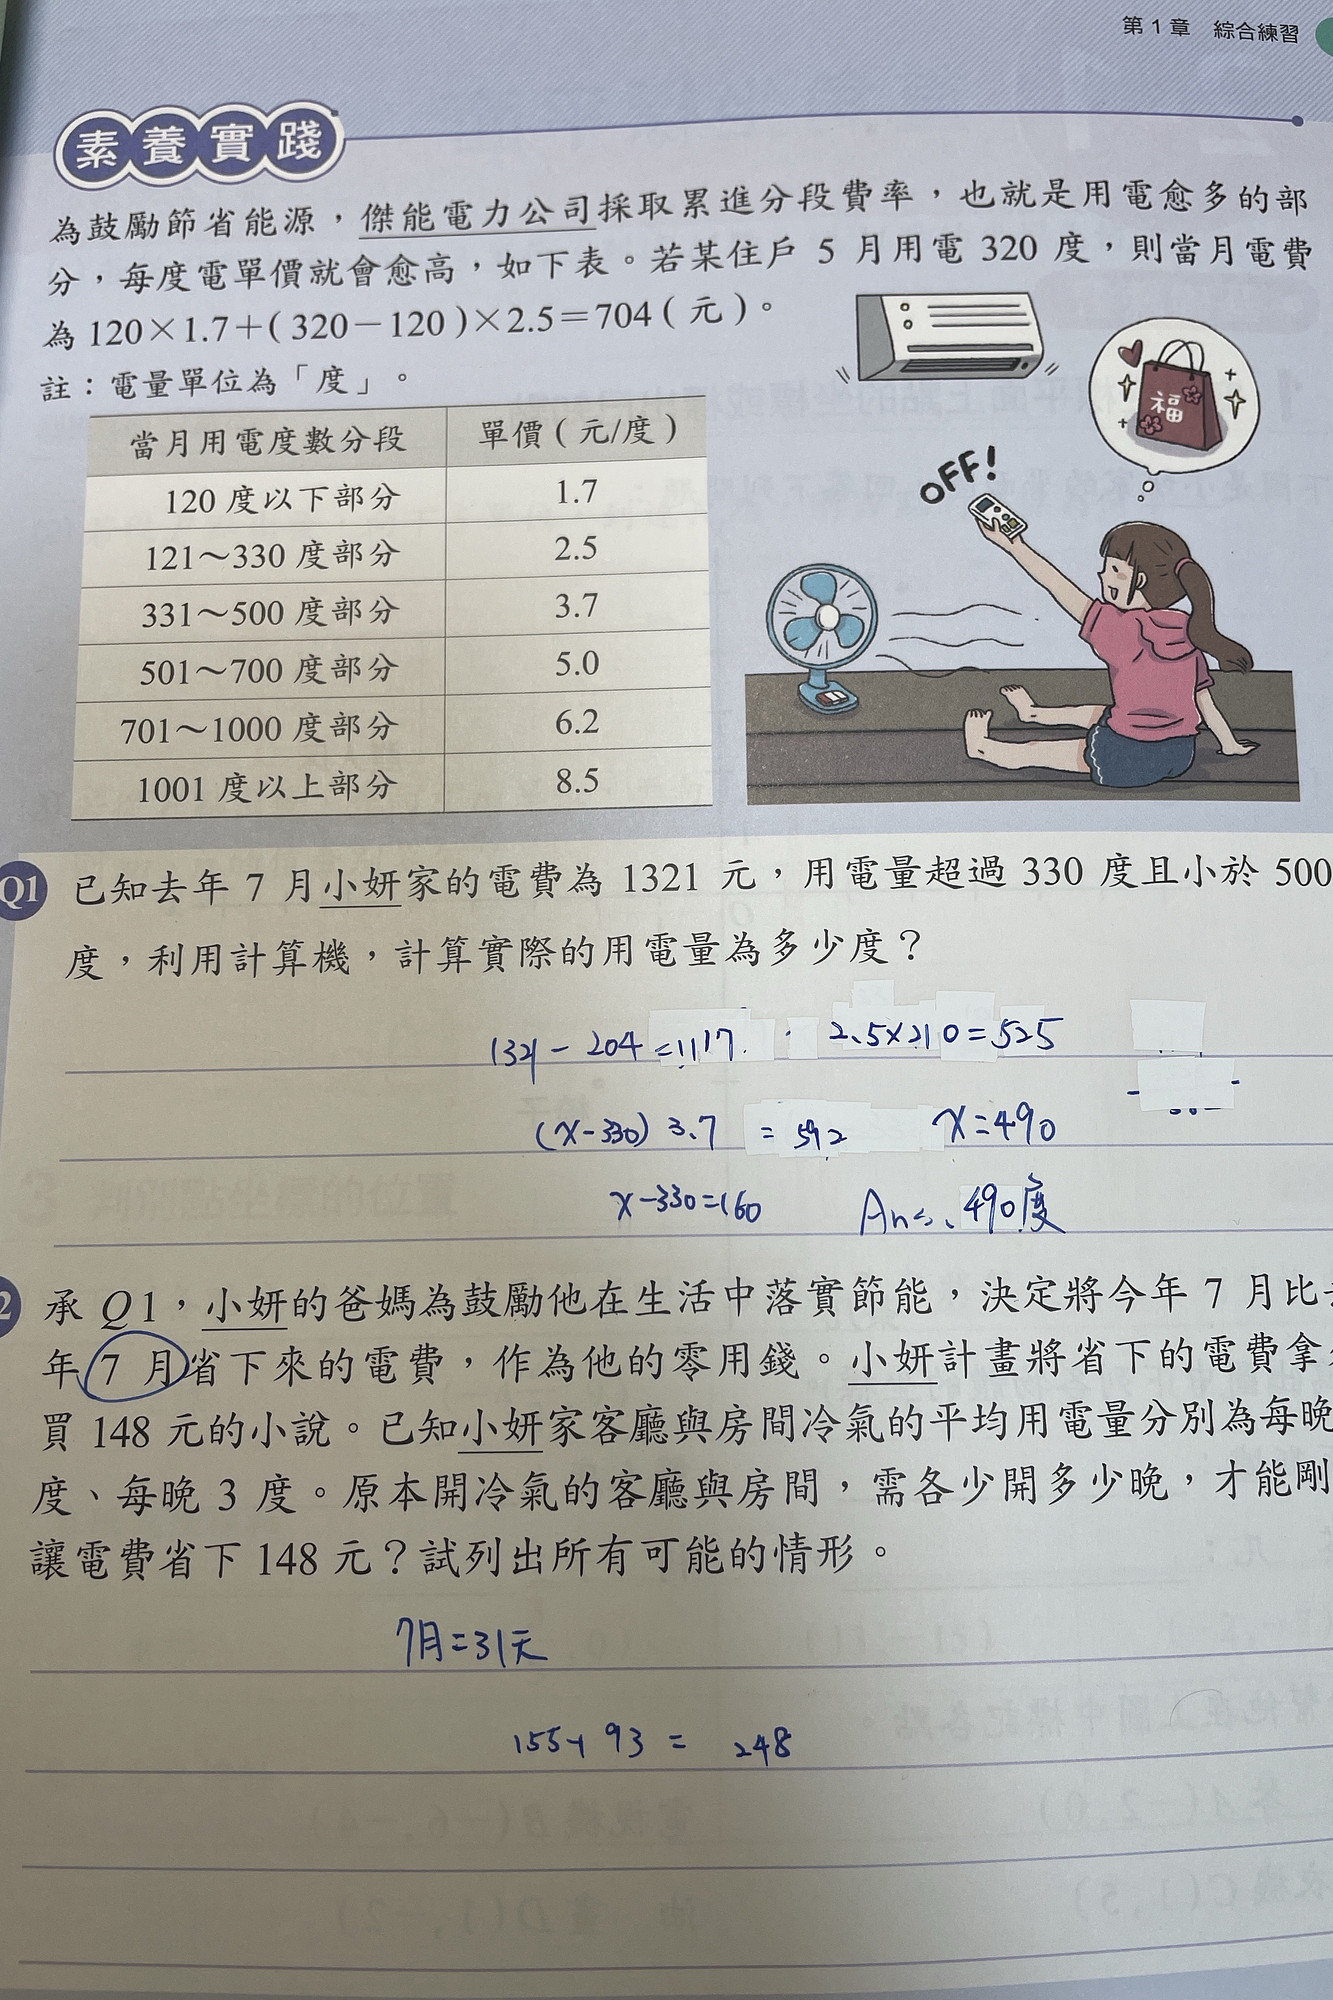 第 1 章 綜合練習
素養實踐
為鼓勵節省能源，傑能電力公司採取累進分段費率，也就是用電愈多的部
分，每度電單價就會愈高，如下表。若某住戶 5 月用電 320 度，則當月電費
為 120×1.7＋( 320－120 )×2.5＝704 ( 元 )。
註：電量單位為「度」。
當月用電度數分段 單價 ( 元/度 )
120 度以下部分 1.7
121～330 度部分 2.5
331～500 度部分 3.7
501～700 度部分 5.0
701～1000 度部分 6.2
1001 度以上部分 8.5
OFF!
福
Q1 已知去年 7 月小妍家的電費為 1321 元，用電量超過 330 度且小於 500
度，利用計算機，計算實際的用電量為多少度？
1321 - 204 = 1117. 2.5×210=525
(x-330) 3.7 = 592 x=490
x-330=160 Ans. 490度
2 承 Q1，小妍的爸媽為鼓勵他在生活中落實節能，決定將今年 7 月比
年 7 月省下來的電費，作為他的零用錢。小妍計畫將省下的電費拿
買 148 元的小說。已知小妍家客廳與房間冷氣的平均用電量分別為每晚
度、每晚 3 度。原本開冷氣的客廳與房間，需各少開多少晚，才能剛
讓電費省下 148 元？試列出所有可能的情形。
7月=31天
155+93 = 248